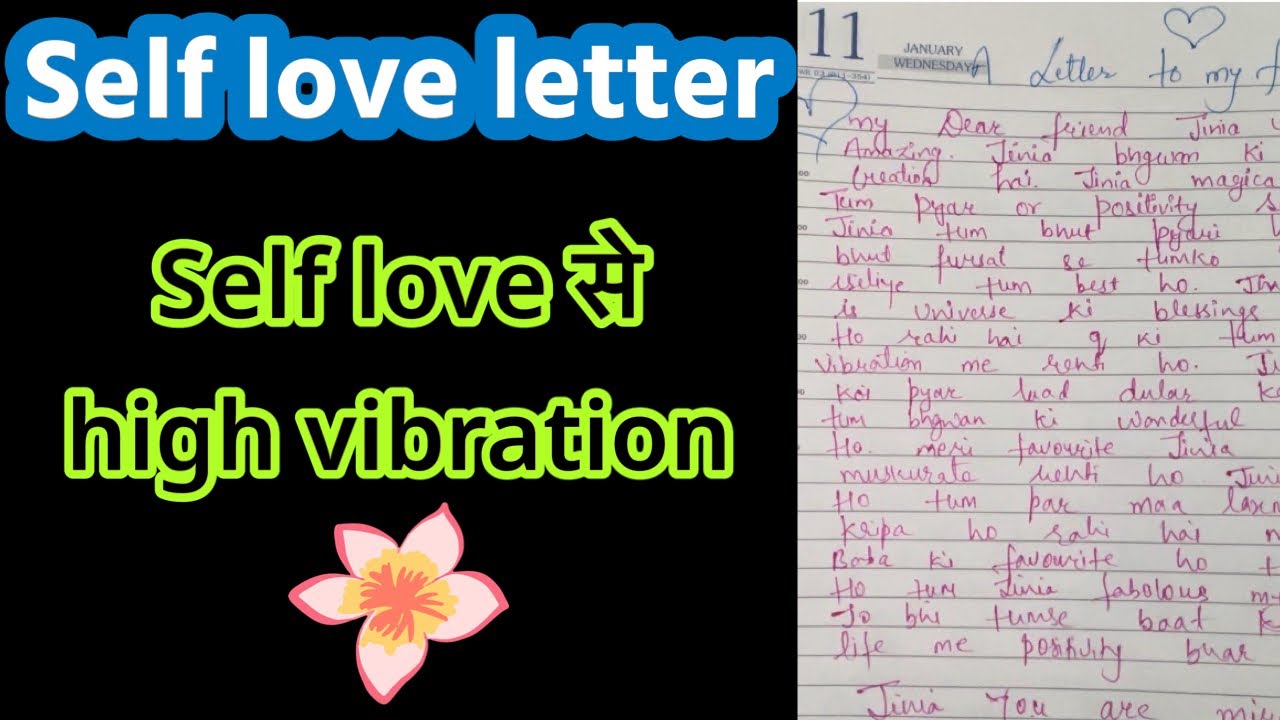 Self love letter
Self love से
high vibration
11
JANUARY
WEDNESDAY
A Letter to my
my Dear friend Jinia
Amazing. Jinia bhgwan ki
Creation hai. Jinia magica
Tum pyar or positivity s
Jinia tum bhut pyari
bhut fursat se tumko
iseliye tum best ho. Jin
is universe ki blessings
Ho rahi hai q ki tum
vibration me rehti ho. Ji
Koi pyar laad dular k
tum bhgwan ki wonderful
Ho. meri favourite Jinia
muskurata rehti ho Jini
Ho tum par maa laxm
Kripa ho rahi hai n
Baba ki favourite ho t
Ho tum Jinia fabolous m
Jo bhi tumse baat k
life me positivity buar
Jinia You are